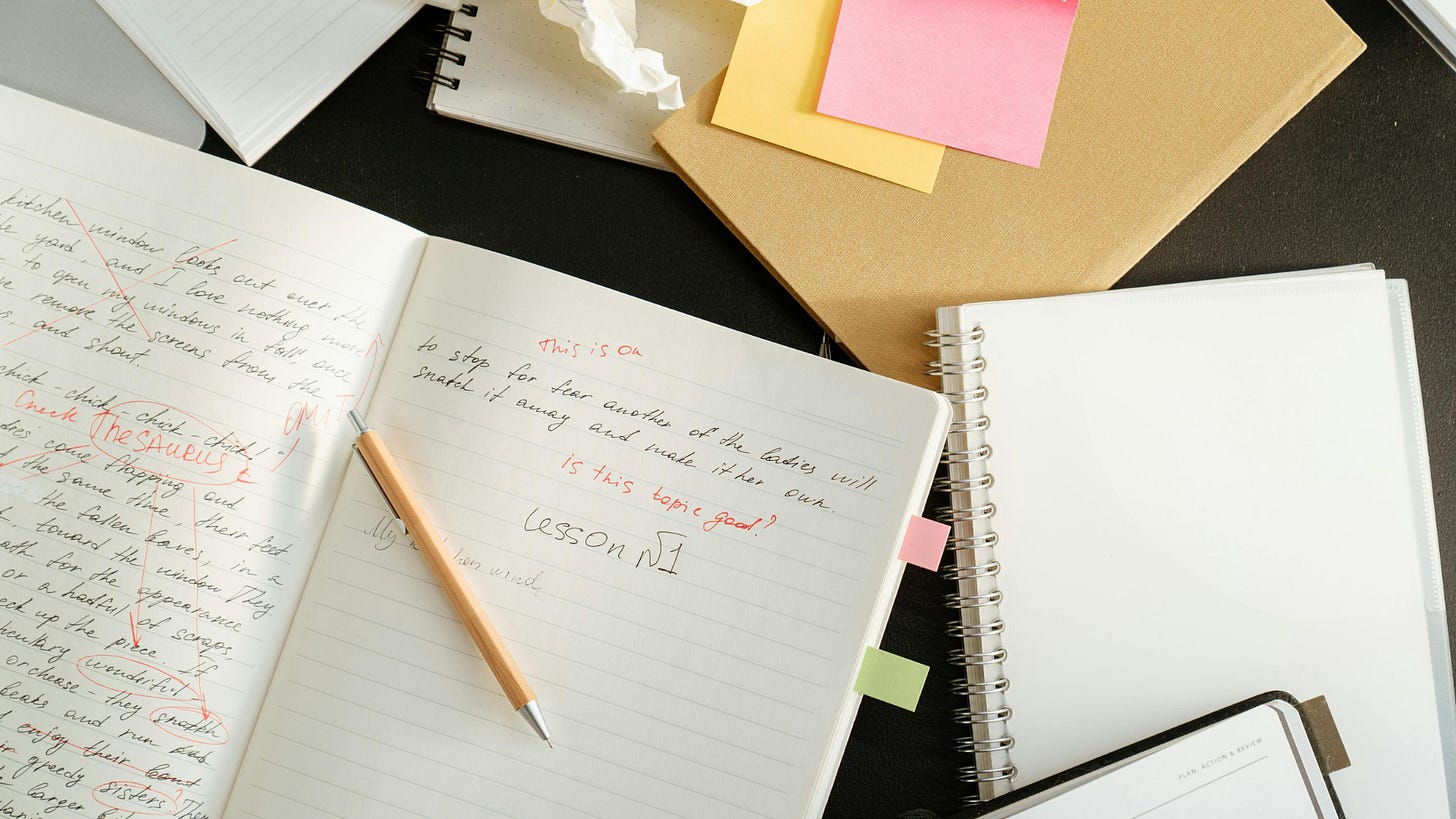 kitchen window looks out over the
yard, and I love nothing more
to open my windows in fall once
remove the screens from the
and shout.
chick-chick-chick-chick!"
OMIT
Check Thesaurus
come flapping and
the same time, their feet
the fallen leaves, in a
toward the window. They
for the appearance
or a hatful of scraps,
up the piece. If
wonderful
or cheese - they snatch
beaks and run
enjoy their
greedy sisters. The
larger
This is Ok
to stop for fear another of the ladies will
snatch it away and make it her own.
is this topic good?
Lesson №1
My
wind
PLAN, ACTION & REVIEW